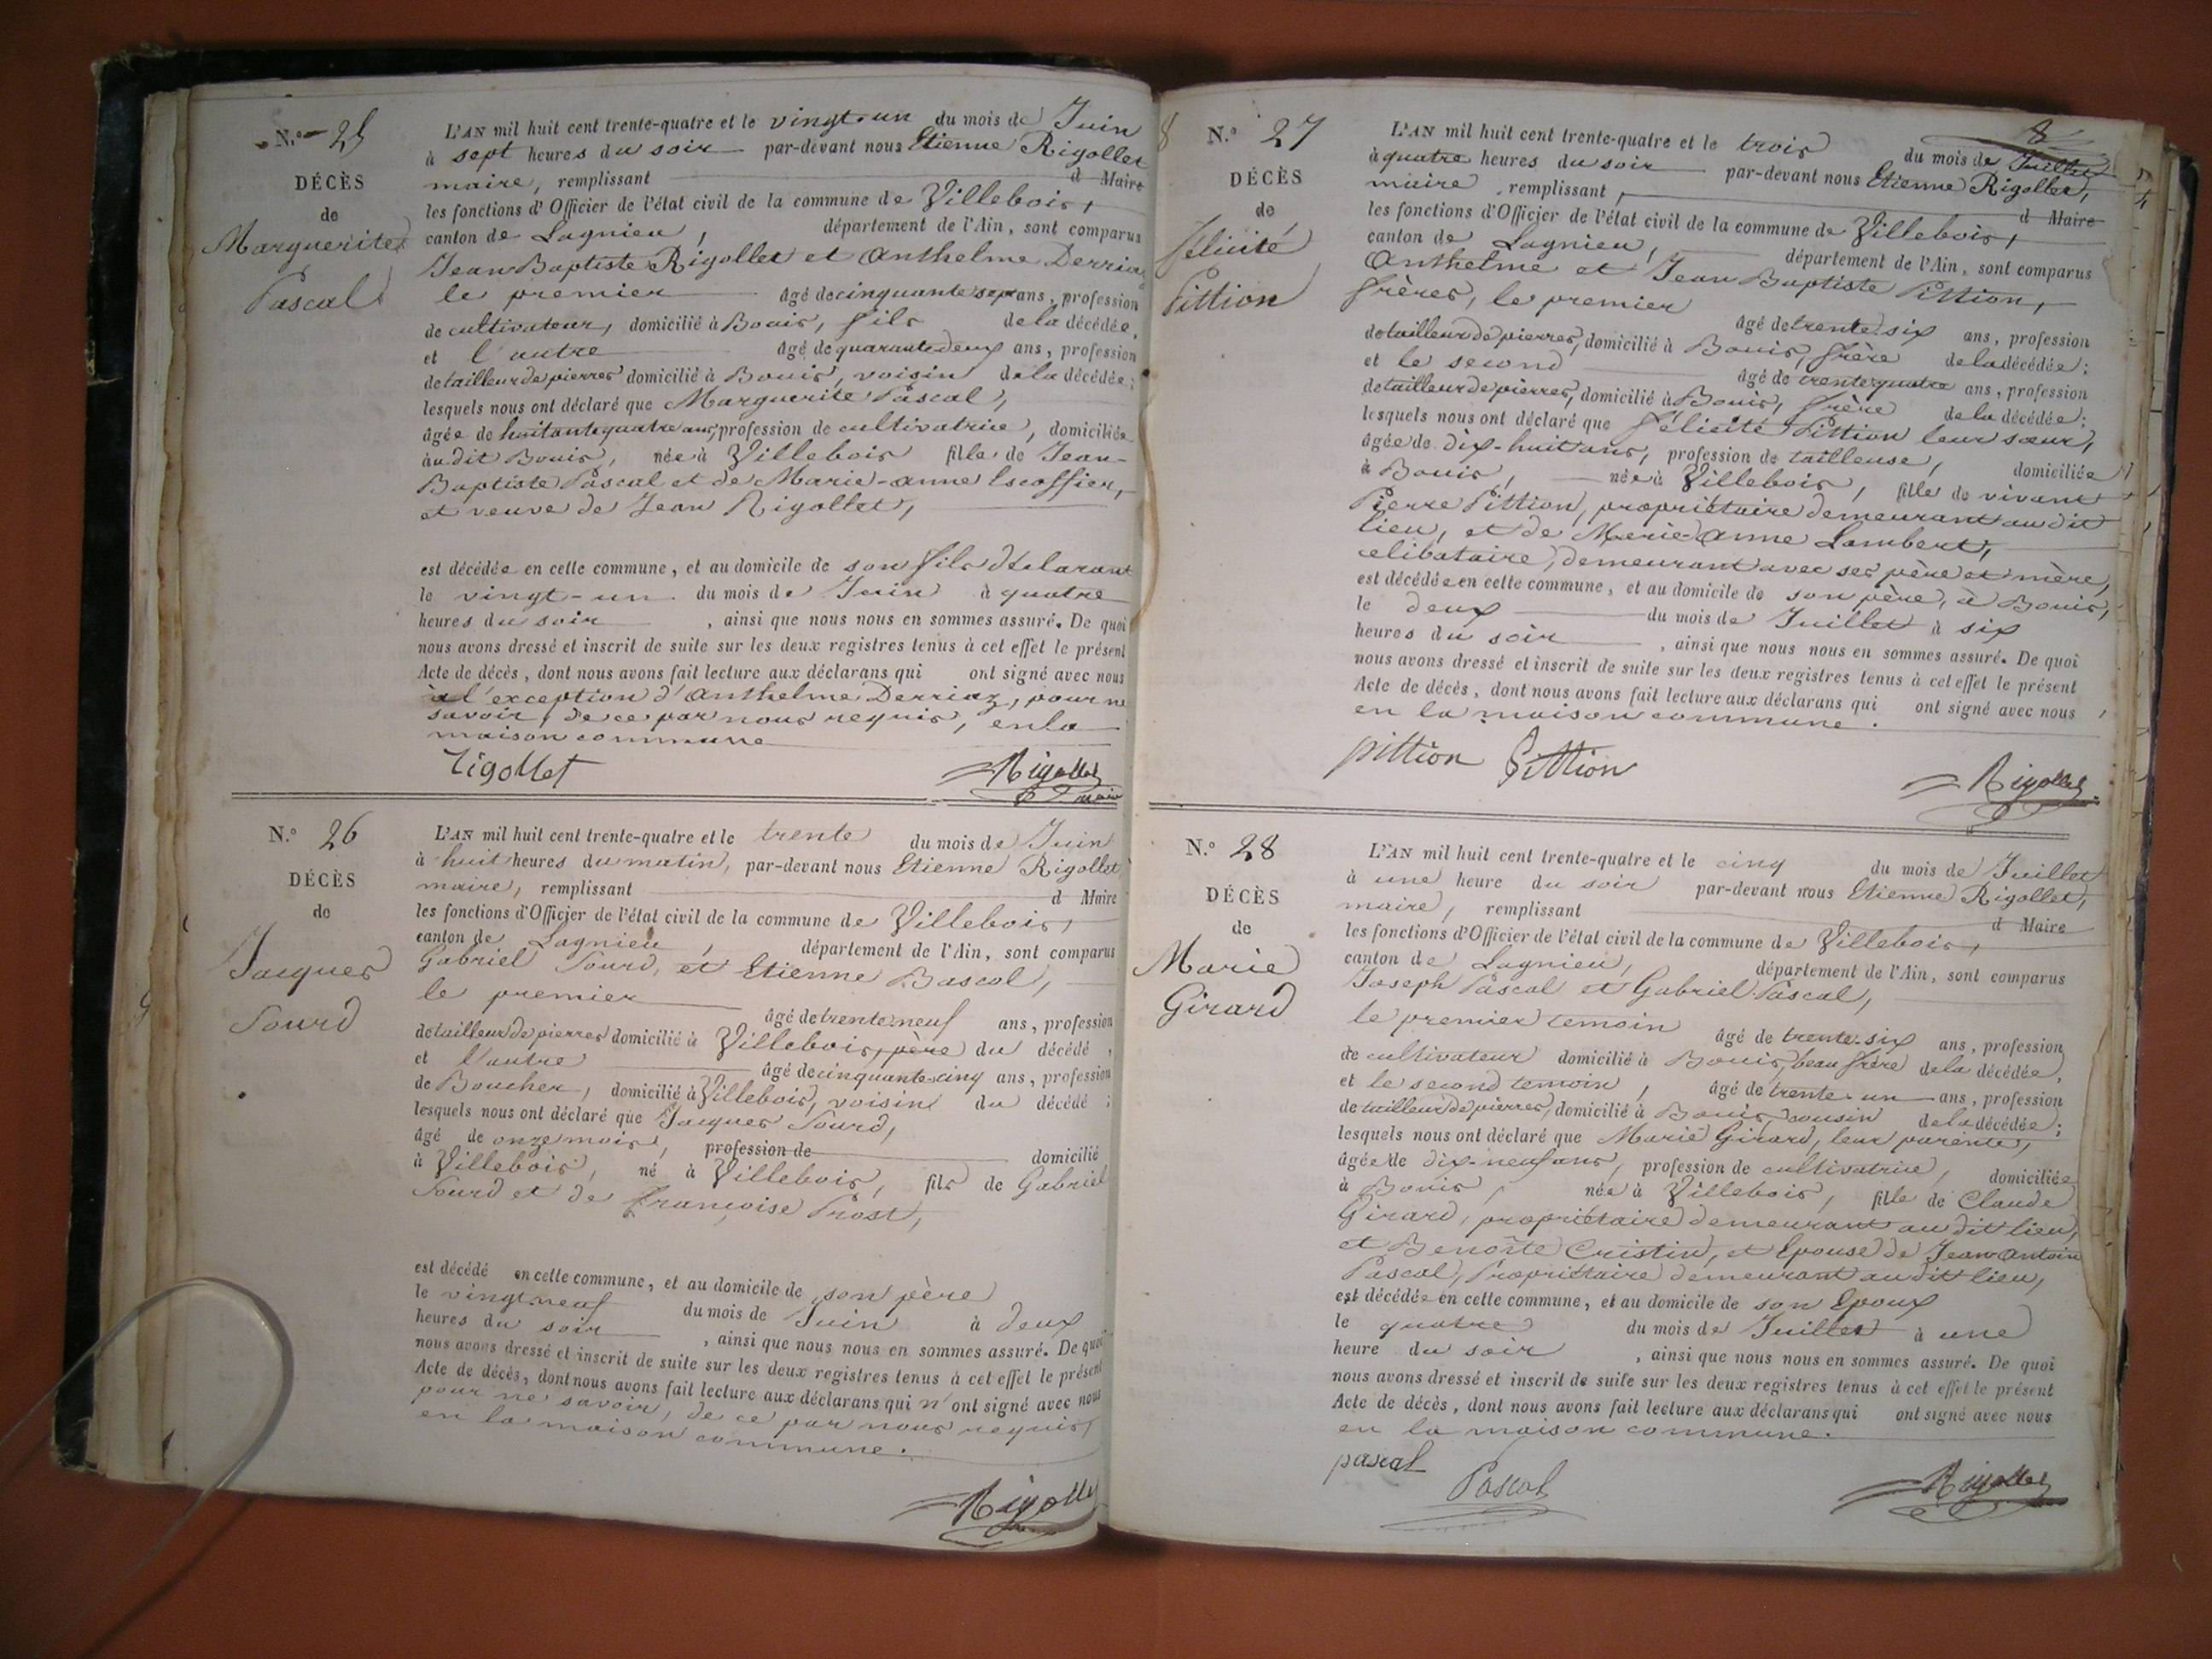 N.º 25
DÉCÈS
de
Marguerite
Pascal
L'AN mil huit cent trente-quatre et le vingt-un du mois de Juin
à sept heures du soir par-devant nous Etienne Rigollet
maire, remplissant d Maire
les fonctions d'Officier de l'état civil de la commune de Villebois,
canton de Lagnieu, département de l'Ain, sont comparus
Jean Baptiste Rigollet et Anthelme Derriaz
le premier âgé de cinquante sept ans, profession
de cultivateur, domicilié à Bouis, fils de la décédée,
et l'autre âgé de quarante deux ans, profession
de tailleur de pierres domicilié à Bouis, voisin de la décédée;
lesquels nous ont déclaré que Marguerite Pascal,
âgée de huitante quatre ans, profession de cultivatrice, domiciliée
au dit Bouis, née à Villebois fille de Jean-
Baptiste Pascal et de Marie-anne Escoffier,
et veuve de Jean Rigollet,
est décédée en cette commune, et au domicile de son fils déclarant
le vingt-un du mois de Juin à quatre
heures du soir, ainsi que nous nous en sommes assuré. De quoi
nous avons dressé et inscrit de suite sur les deux registres tenus à cet effet le présent
Acte de décès, dont nous avons fait lecture aux déclarans qui ont signé avec nous
à l'exception d'Anthelme Derriaz, pour ne
savoir, de ce par nous requis, en la
maison commune
rigollet Rigollet
maire
N.º 26
DÉCÈS
de
Jacques
Sourd
L'AN mil huit cent trente-quatre et le trente du mois de Juin
à huit heures du matin, par-devant nous Etienne Rigollet
maire, remplissant d Maire
les fonctions d'Officier de l'état civil de la commune de Villebois,
canton de Lagnieu, département de l'Ain, sont comparus
Gabriel Sourd, et Etienne Bascol,
le premier âgé de trente-neuf ans, profession
de tailleur de pierres domicilié à Villebois, père du décédé,
et l'autre âgé de cinquante-cinq ans, profession
de Boucher, domicilié à Villebois, voisin du décédé;
lesquels nous ont déclaré que Jacques Sourd,
âgé de onze mois, profession de domicilié
à Villebois, né à Villebois, fils de Gabriel
Sourd et de françoise Prost,
est décédé en cette commune, et au domicile de son père
le vingt-neuf du mois de Juin à deux
heures du soir, ainsi que nous nous en sommes assuré. De quoi
nous avons dressé et inscrit de suite sur les deux registres tenus à cet effet le présent
Acte de décès, dont nous avons fait lecture aux déclarans qui n'ont signé avec nous
pour ne savoir, de ce par nous requis,
en la maison commune.
Rigollet
8
N.º 27
DÉCÈS
de
Félicité
Pittion
L'AN mil huit cent trente-quatre et le trois du mois de Juillet
à quatre heures du soir par-devant nous Etienne Rigollet,
maire, remplissant d Maire
les fonctions d'Officier de l'état civil de la commune de Villebois,
canton de Lagnieu, département de l'Ain, sont comparus
Anthelme et Jean Baptiste Pittion,
frères, le premier âgé de trente-six ans, profession
de tailleur de pierres, domicilié à Bouis, frère de la décédée;
et le second âgé de trente quatre ans, profession
de tailleur de pierres, domicilié à Bouis, frère de la décédée;
lesquels nous ont déclaré que félicité Pittion leur sœur,
âgée de dix-huit ans, profession de tailleuse, domiciliée
à Bouis, née à Villebois, fille de vivant
Pierre Pittion, propriétaire demeurant au dit
lieu, et de Marie Anne Lambert,
celibataire, demeurant avec ses père et mère,
est décédée en cette commune, et au domicile de son père, à Bouis,
le deux du mois de Juillet à six
heures du soir, ainsi que nous nous en sommes assuré. De quoi
nous avons dressé et inscrit de suite sur les deux registres tenus à cet effet le présent
Acte de décès, dont nous avons fait lecture aux déclarans qui ont signé avec nous,
en la maison commune.
pittion Pittion Rigollet
N.º 28
DÉCÈS
de
Marie
Girard
L'AN mil huit cent trente-quatre et le cinq du mois de Juillet
à une heure du soir par-devant nous Etienne Rigollet,
maire, remplissant d Maire
les fonctions d'Officier de l'état civil de la commune de Villebois,
canton de Lagnieu, département de l'Ain, sont comparus
Joseph Pascal et Gabriel Pascal,
le premier temoin âgé de trente-six ans, profession
de cultivateur domicilié à Bouis, beau frère de la décédée,
et le second temoin, âgé de trente-un ans, profession
de tailleur de pierres, domicilié à Bouis, cousin de la décédée;
lesquels nous ont déclaré que Marie Girard, leur parente,
âgée de dix-neuf ans, profession de cultivatrice, domiciliée
à Bouis, née à Villebois, fille de Claude
Girard, propriétaire demeurant au dit lieu,
et Benoîte Cristin, et Epouse de Jean Antoine
Pascal, Propriétaire demeurant au dit lieu,
est décédée en cette commune, et au domicile de son Epoux
le quatre du mois de Juillet à une
heure du soir, ainsi que nous nous en sommes assuré. De quoi
nous avons dressé et inscrit de suite sur les deux registres tenus à cet effet le présent
Acte de décès, dont nous avons fait lecture aux déclarans qui ont signé avec nous
en la maison commune.
pascal Pascal Rigollet